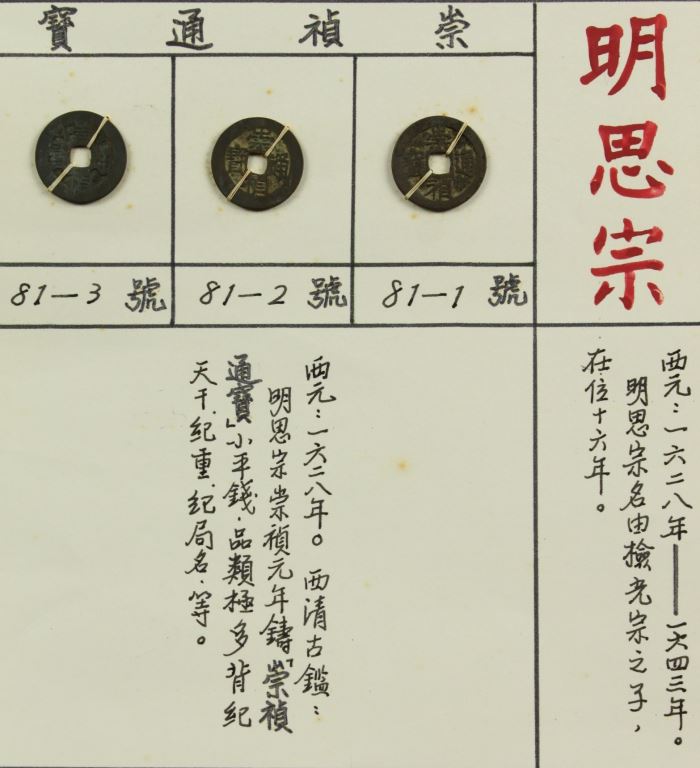 明思宗
西元：一六二八年——一六四三年。
明思宗名由檢光宗之子，
在位十六年。
崇禎通寶
81—1 號
81—2 號
81—3 號
西元：一六二八年。西清古鑑：
明思宗崇禎元年鑄「崇禎
通寶」小平錢．品類極多背紀
天干．紀重．紀局名．等。